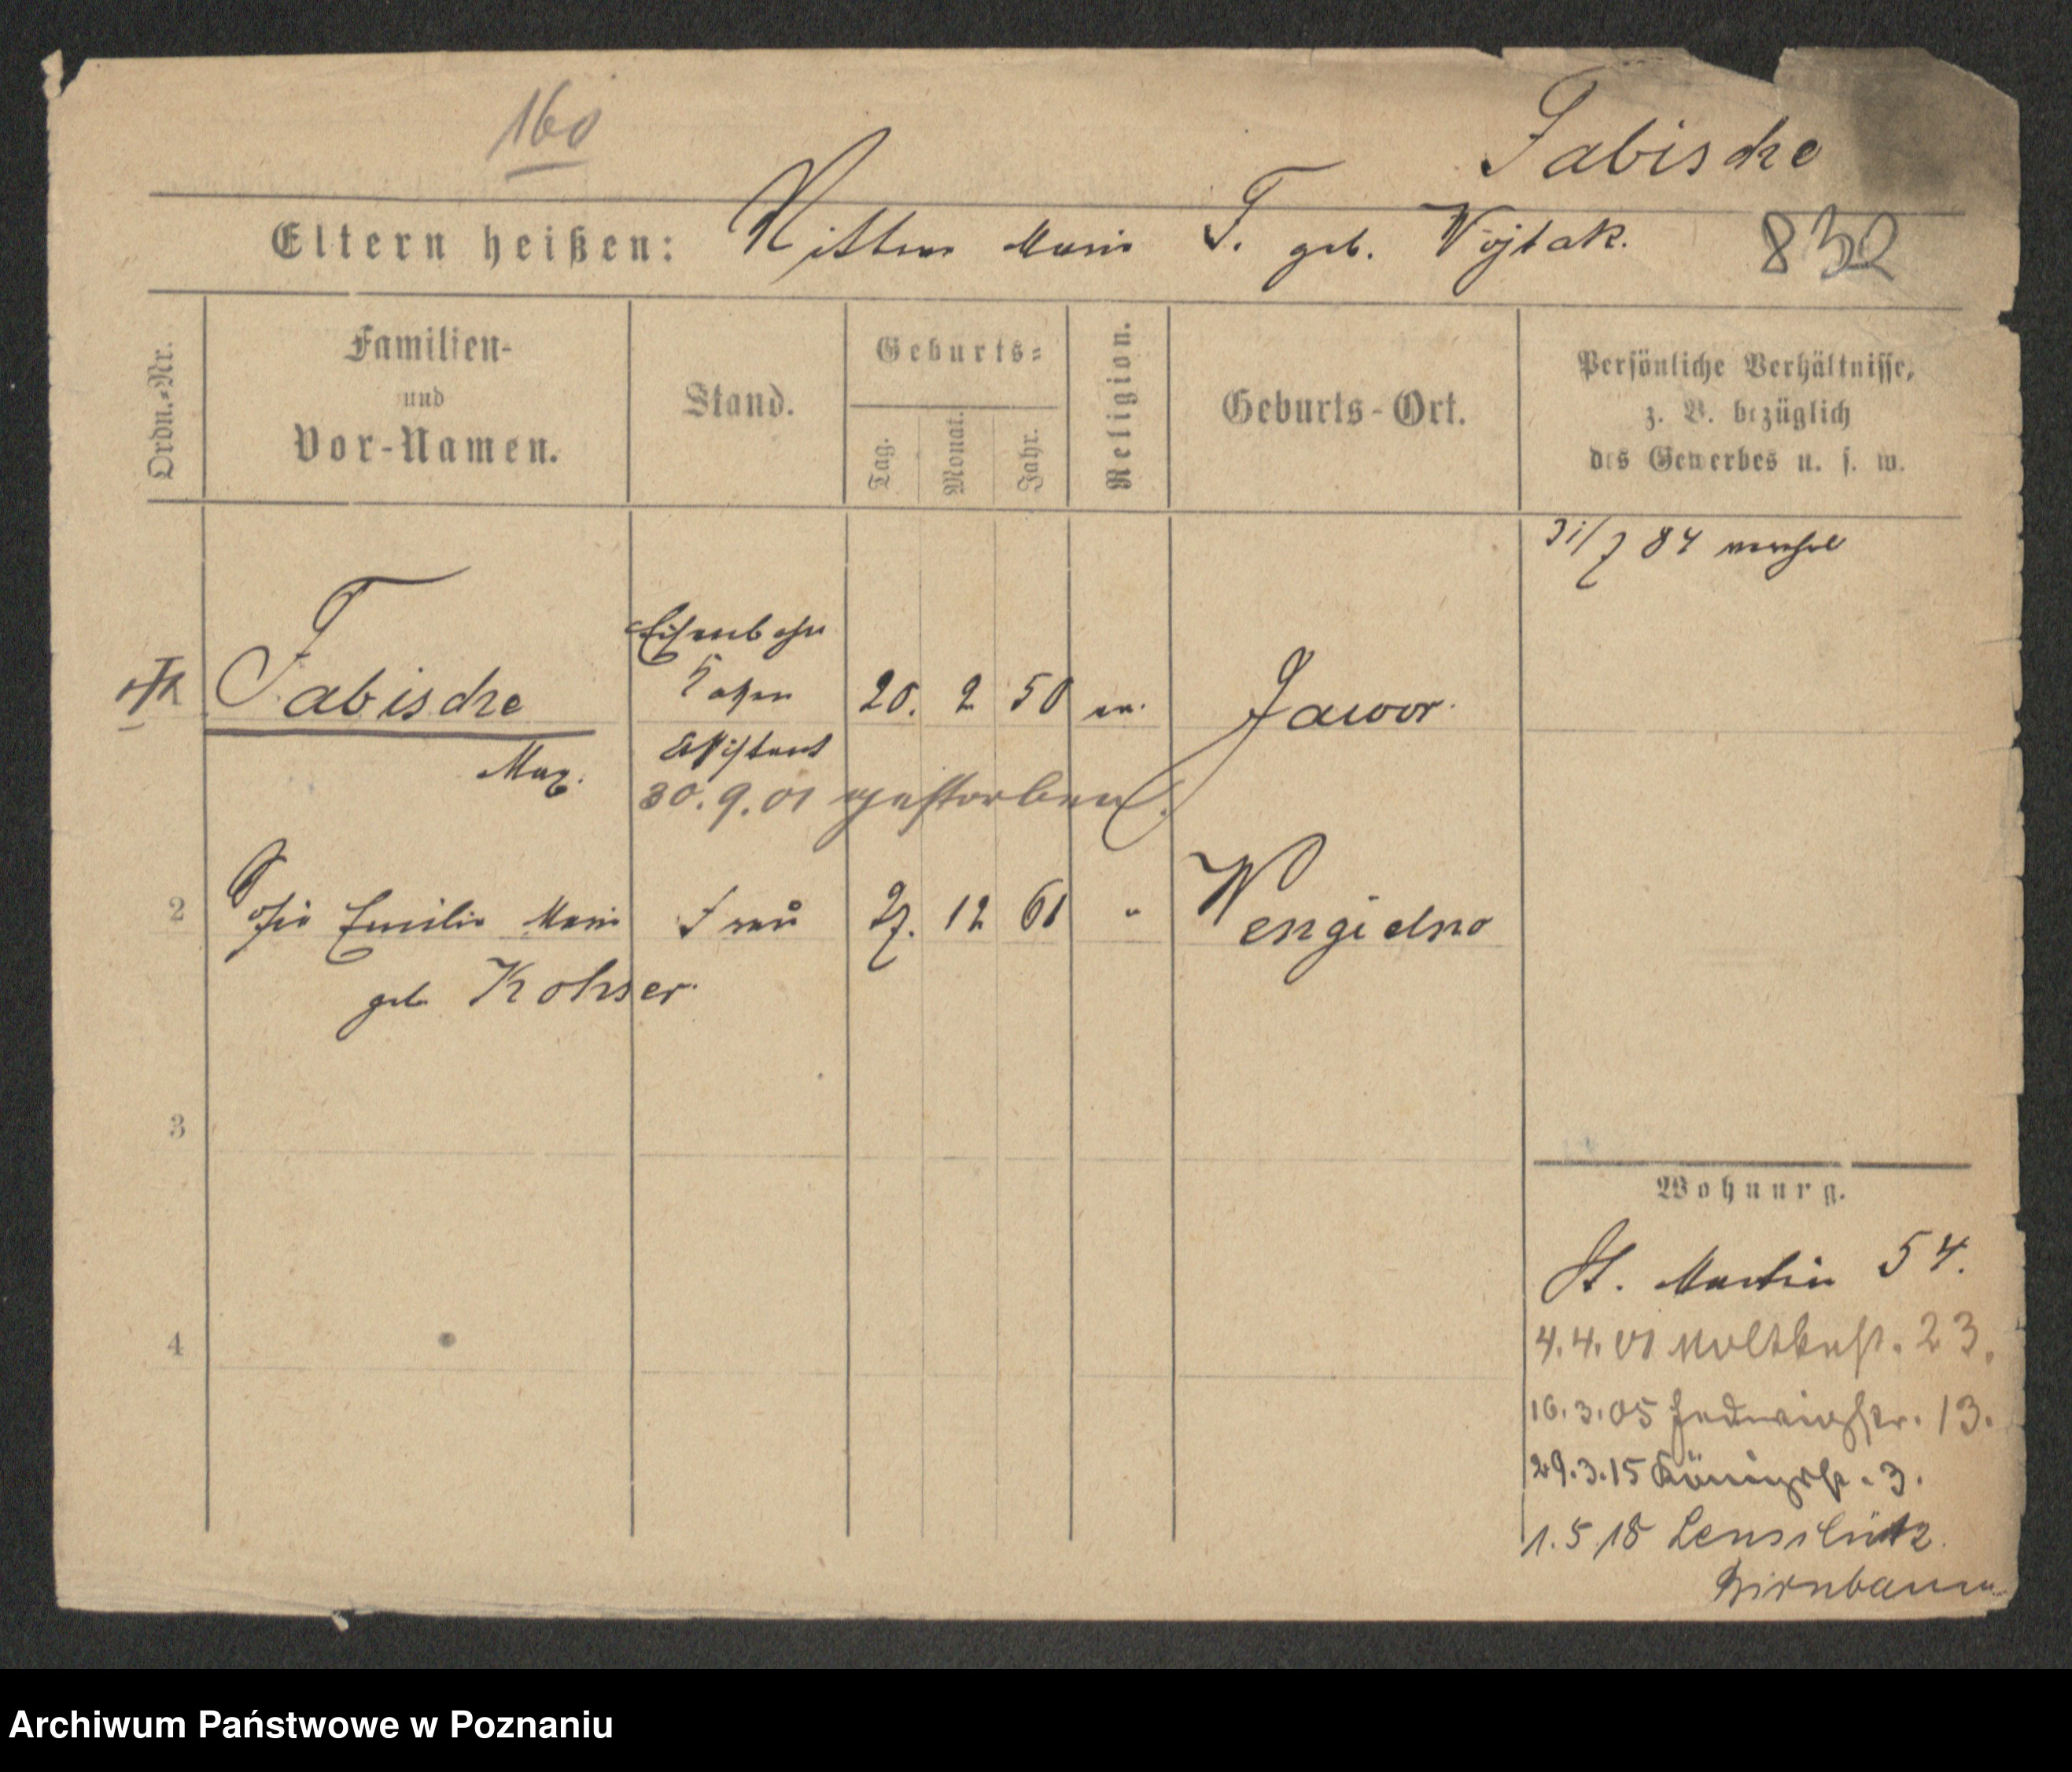 160
Fabische
Eltern heißen: Wittwe Marie F. geb. Wojtak.
832
Ordn.-Nr.
Familien-
und
Vor-Namen.
Stand.
Geburts-
Tag.
Monat.
Jahr.
Religion.
Geburts-Ort.
Persönliche Verhältnisse,
z. B. bezüglich
des Gewerbes u. s. w.
31/7 84
Fabische
Max.
Eisenbahn
Assistent
20. 2 50 ev. Jawor.
30. 9. 01 gestorben.
2 Sofie Emilie Marie Frau 27. 12 61 " Wengielno
geb Kohser.
3
4
Wohnung.
St. Martin 54.
4. 4. 01 Moltkestr. 23.
16. 3. 05 Hedwigstr. 13.
29. 3. 15 Königstr. 3.
1. 5 18
Birnbaum